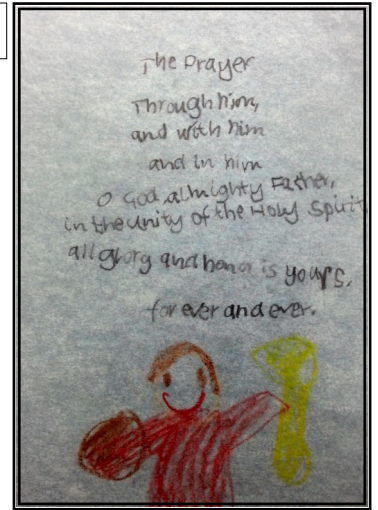 The Prayer
Through him,
and with him
and in him
O God almighty Father,
in the unity of the Holy Spirit
all glory and honor is yours,
for ever and ever.